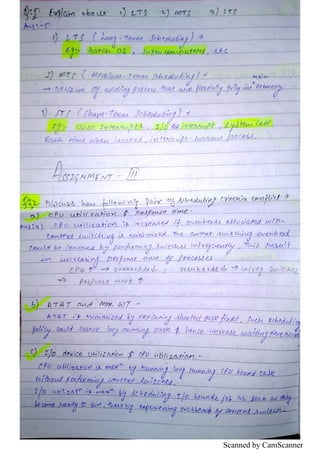 Q:5 Explain about 1) LTS 2) MTS 3) STS
Ans:-5
1) LTS (Long-Term Scheduling) :-
Eg:- Batch OS, Super computers, etc
2) MTS (Medium-Term Scheduling) :-
→ Decision of adding process that are partially fully in main memory.
3) STS (Short-Term Scheduling) :-
Eg:- Clock Interrupts, I/O interrupt, System Call
Each time when invoked, interrupt current process.
ASSIGNMENT - III
Q:1. Discuss how following pair of scheduling criteria conflict :-
a) CPU utilization & Response time -
CPU utilization is increased if overheads associated with
context switching is minimized. The context switching overhead
could be lowered by performing switches infrequently, this result
in increasing response time of processes
CPU ↑ → overheads ↓, overheads → infreq switches
⇒ Response time ↑
b) ATAT and Max. WT -
ATAT is minimized by executing shortest task first. Such scheduling
policy could starve long running task & hence increase waiting time
c) I/O device utilization & CPU utilization -
CPU utilization is max^m by running long running CPU bound task
without performing context switches.
I/O utiliz^n is max^m by scheduling I/O bounds job as soon as they
become ready to run, thereby experiencing overheads of context switch
Scanned by CamScanner